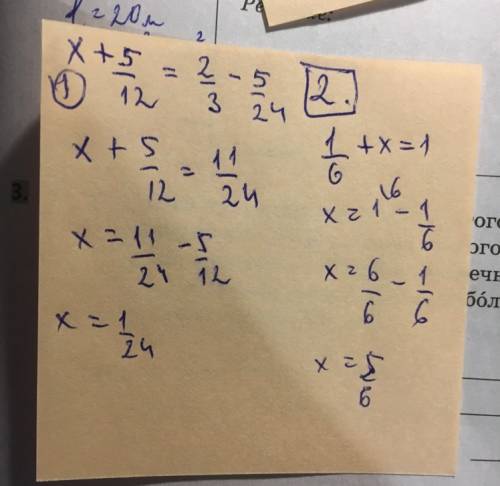 l = 20 м
Ре ие:
① x + 5/12 = 2/3 - 5/24
x + 5/12 = 11/24
x = 11/24 - 5/12
x = 1/24
2.
1/6 + x = 1
x = 1^{\6} - 1/6
x = 6/6 - 1/6
x = 5/6
3.
ого
ого
ечн
бо́л